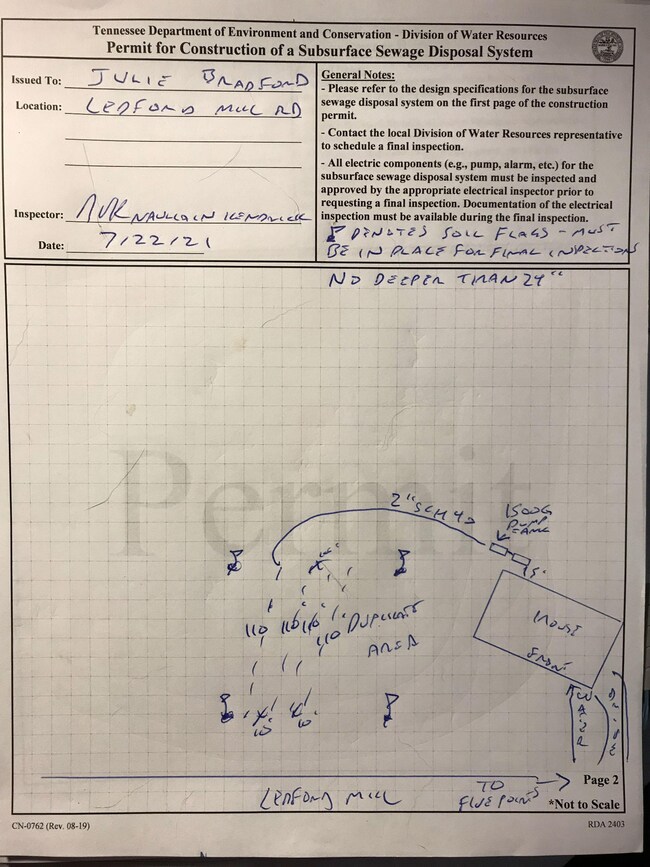 Tennessee Department of Environment and Conservation - Division of Water Resources
Permit for Construction of a Subsurface Sewage Disposal System
Issued To: JULIE BRADFORD
Location: LEDFORD MILL RD
Inspector: KENDRICK
Date: 7/22/21
General Notes:
- Please refer to the design specifications for the subsurface
sewage disposal system on the first page of the construction
permit.
- Contact the local Division of Water Resources representative
to schedule a final inspection.
- All electric components (e.g., pump, alarm, etc.) for the
subsurface sewage disposal system must be inspected and
approved by the appropriate electrical inspector prior to
requesting a final inspection. Documentation of the electrical
inspection must be available during the final inspection.
DENOTES SOIL FLAGS - MUST
BE IN PLACE FOR FINAL INSPECTION
NO DEEPER THAN 24"
Permit
2" SCH 40
1500G
PUMP
TANK
5'
HOUSE
FRONT
110 110 110
110
DUPLICATE
AREA
10' 10'
WATER
DRIVE
Page 2
LEDFORD MILL
TO
FIVE POINTS
*Not to Scale
CN-0762 (Rev. 08-19)
RDA 2403